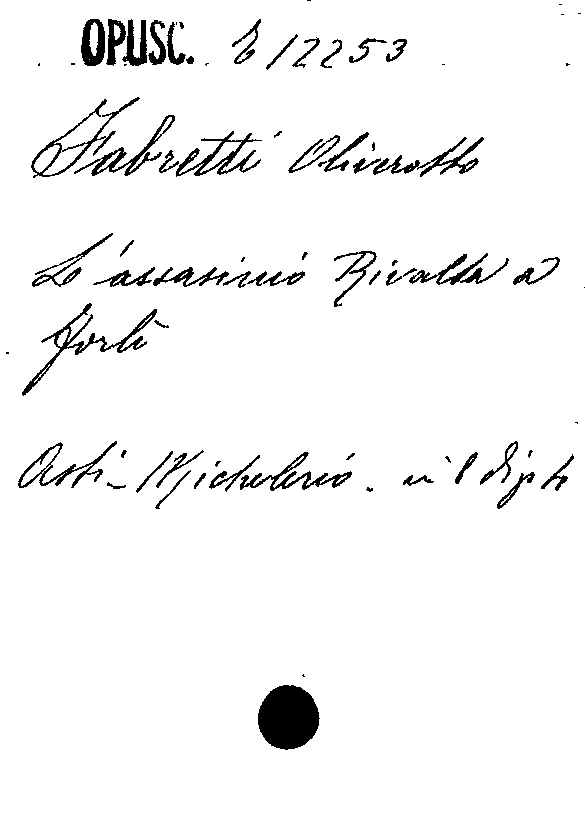 OPUSC. E 12253
Fabretti Oliverotto
L'assasinio Rivalta a
Forlì
Asti - Michelerio. in 8 dip to